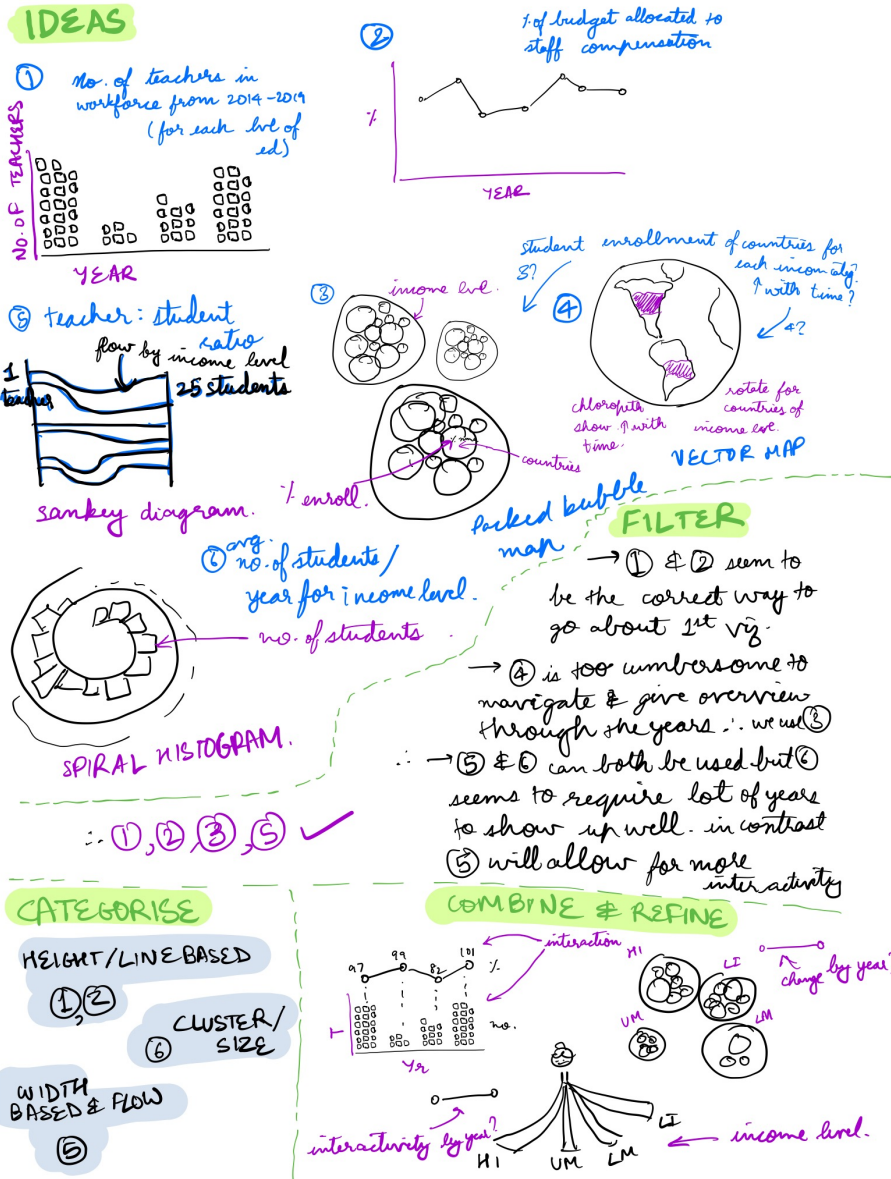 IDEAS
①
No. of teachers in
workforce from 2014-2019
(for each lvl of
ed)
NO. OF TEACHERS
YEAR
②
% of budget allocated to
staff compensation
%
YEAR
③
income lvl.
countries
% enroll.
Packed bubble
map
student enrollment of countries for
each incom catg?
↑ with time?
3?
4?
④
chloropith
show ↑ with
time.
rotate for
countries of
income lvl.
VECTOR MAP
⑤ teacher: student
ratio
flow by income level
1
teacher
25 students
sankey diagram.
⑥ avg.
no. of students/
year for income level.
no. of students
SPIRAL HISTOGRAM.
FILTER
→ ① & ② seem to
be the correct way to
go about 1st viz.
→ ④ is too cumbersome to
navigate & give overview
through the years ∴ we use ③
∴ → ⑤ & ⑥ can both be used but ⑥
seems to require lot of years
to show up well. in contrast
⑤ will allow for more
interactivity
∴ ①, ②, ③, ⑤ ✓
CATEGORISE
HEIGHT/LINE BASED
①, ②
CLUSTER/
⑥ SIZE
WIDTH
BASED & FLOW
⑤
COMBINE & REFINE
97 99 82 101
%
interaction
T
no.
Yr
HI
LI
UM
LM
change by year?
interactivity by year?
HI UM LM LI
income level.